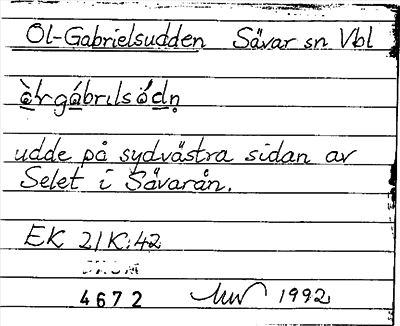 Ol-Gabrielsudden Sävar sn Vbl
udde på sydvästra sidan av
Selet i Sävarån.
EK 21K:42
4672 1992